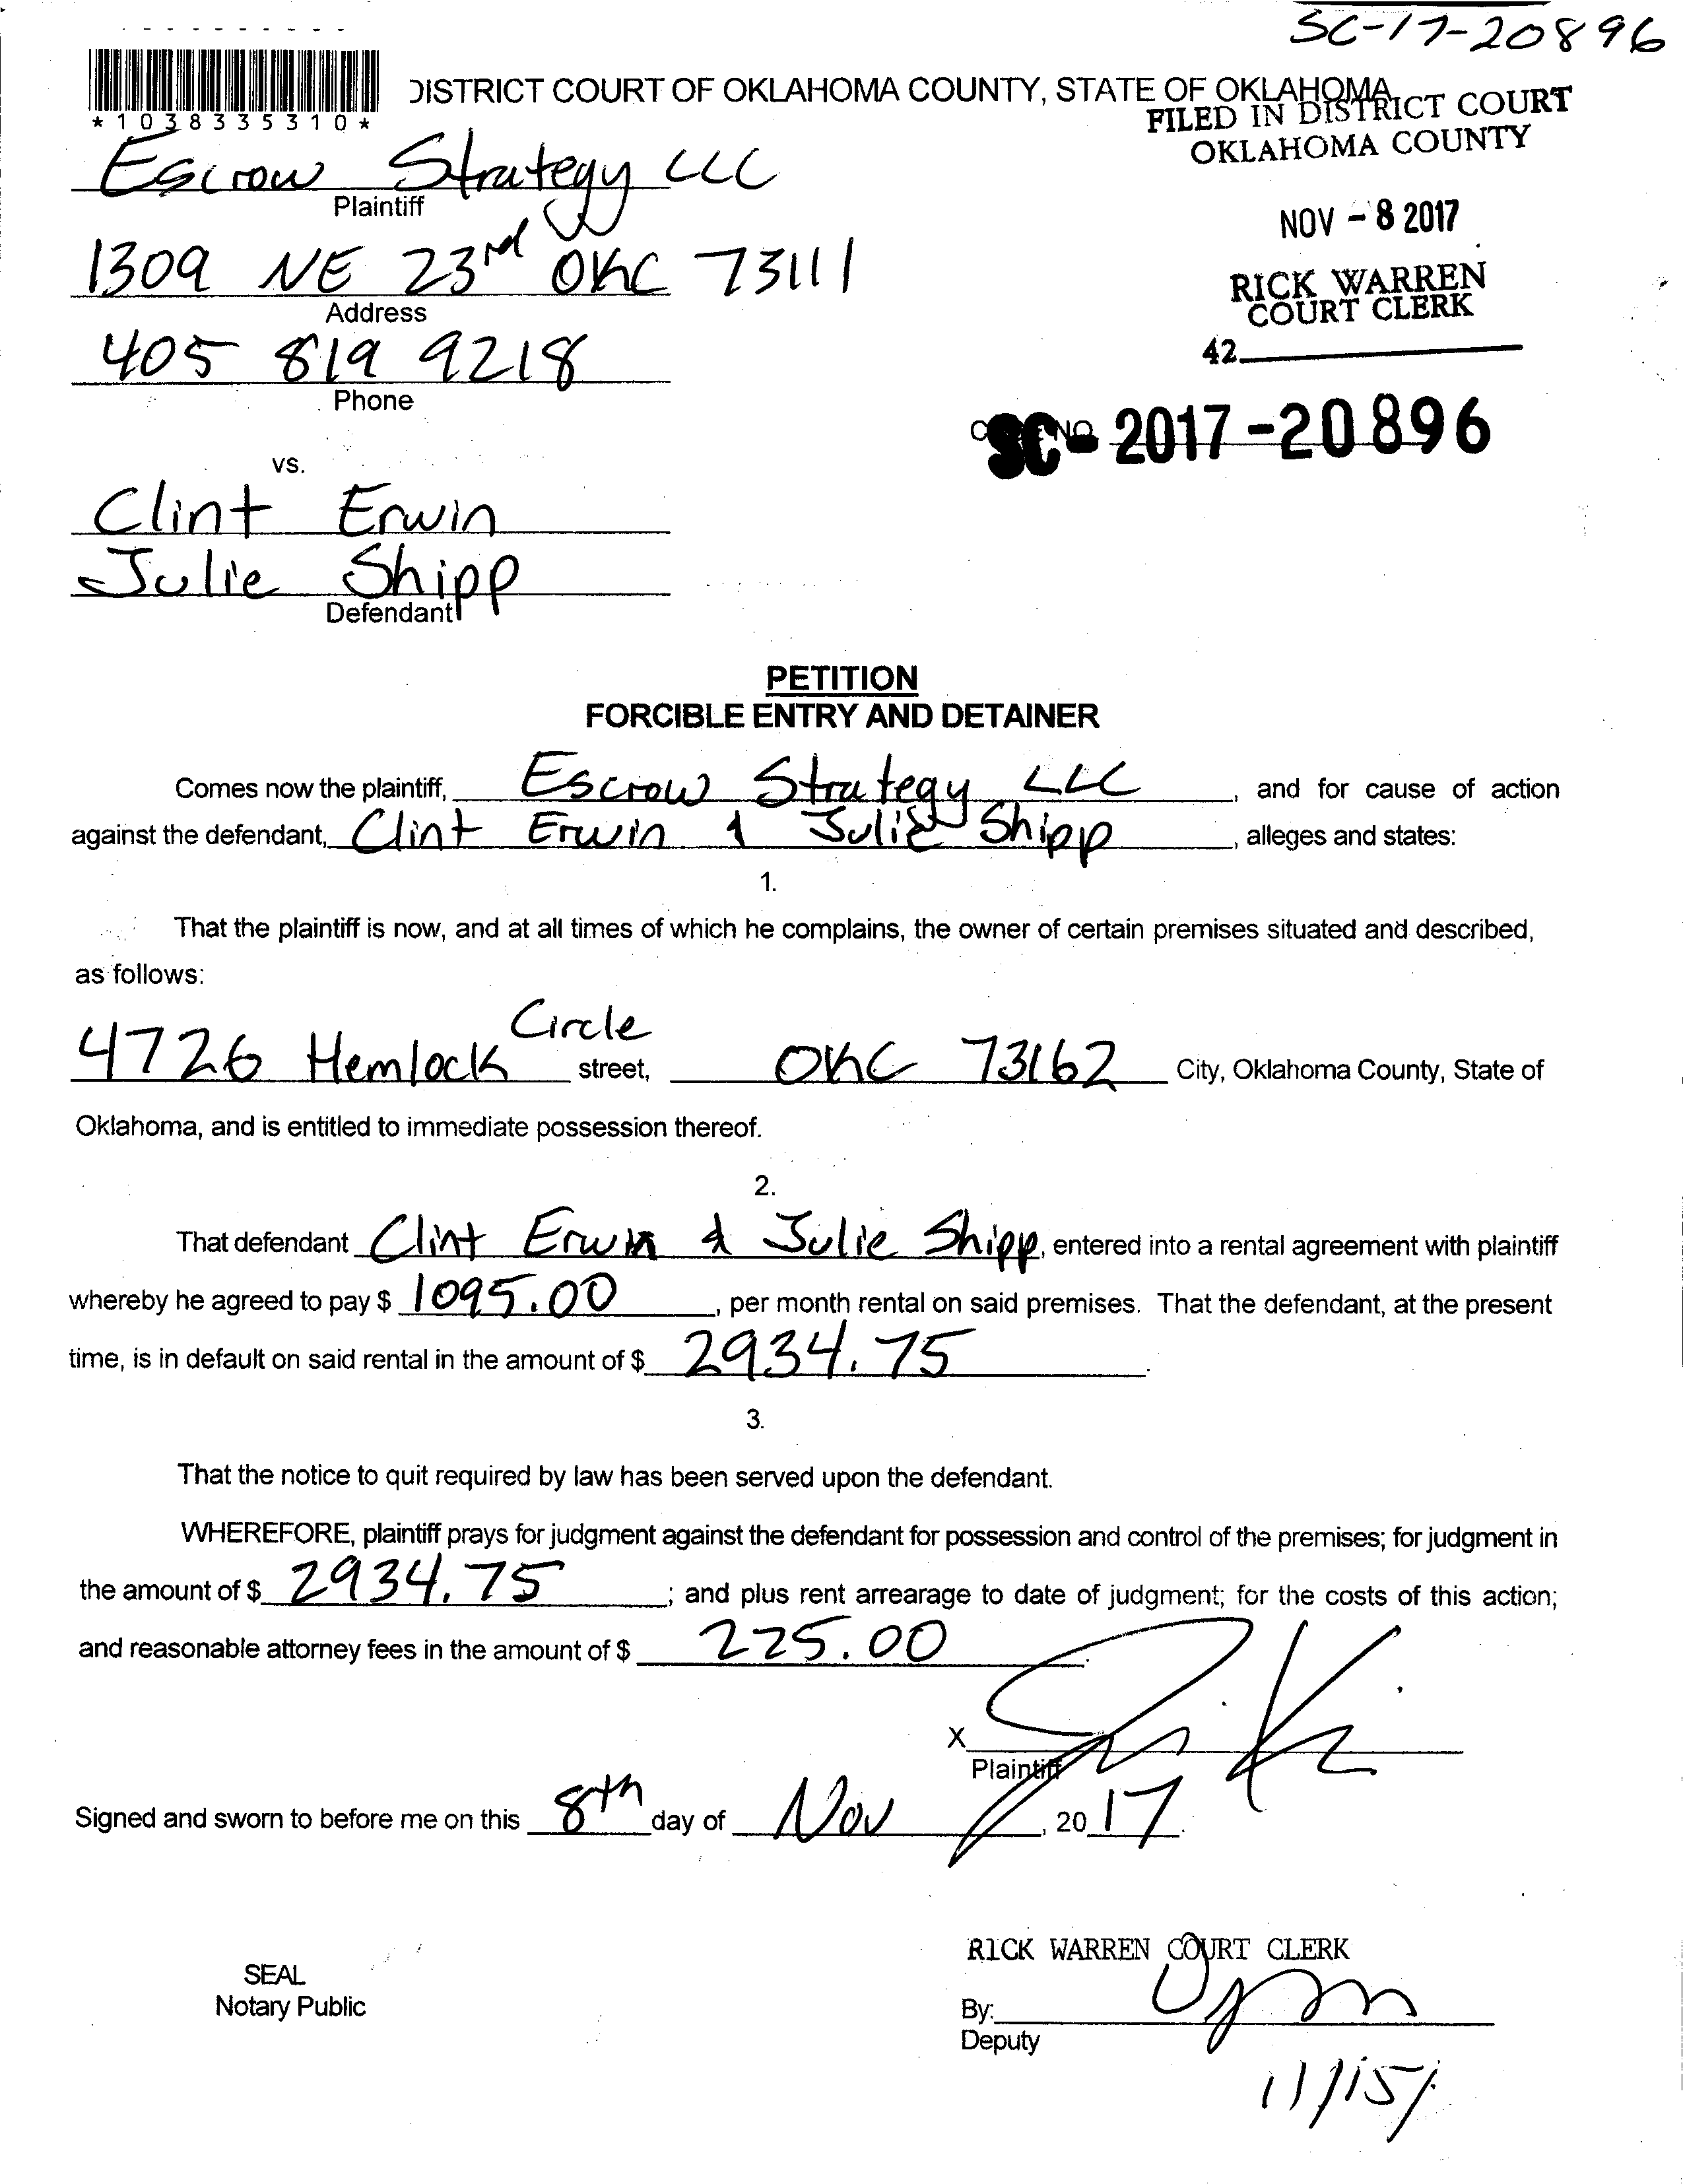 SC-17-20896
DISTRICT COURT OF OKLAHOMA COUNTY, STATE OF OKLAHOMA
*1038335310*
FILED IN DISTRICT COURT
OKLAHOMA COUNTY
Escrow Strategy LLC
Plaintiff
NOV - 8 2017
1309 NE 23rd OKC 73111
Address
RICK WARREN
COURT CLERK
405 819 9218
Phone
42
SC- 2017-20896
vs.
Clint Erwin
Julie Shipp
Defendant
PETITION
FORCIBLE ENTRY AND DETAINER
Comes now the plaintiff, Escrow Strategy LLC, and for cause of action
against the defendant, Clint Erwin & Julie Shipp, alleges and states:
1.
That the plaintiff is now, and at all times of which he complains, the owner of certain premises situated and described,
as follows:
4726 Hemlock Circle street, OKC 73162 City, Oklahoma County, State of
Oklahoma, and is entitled to immediate possession thereof.
2.
That defendant Clint Erwin & Julie Shipp, entered into a rental agreement with plaintiff
whereby he agreed to pay $ 1095.00, per month rental on said premises. That the defendant, at the present
time, is in default on said rental in the amount of $ 2934.75.
3.
That the notice to quit required by law has been served upon the defendant.
WHEREFORE, plaintiff prays for judgment against the defendant for possession and control of the premises; for judgment in
the amount of $ 2934.75; and plus rent arrearage to date of judgment; for the costs of this action;
and reasonable attorney fees in the amount of $ 225.00.
X
Plaintiff
Signed and sworn to before me on this 8th day of Nov, 2017.
RICK WARREN COURT CLERK
SEAL
Notary Public
By:
Deputy
11/15/